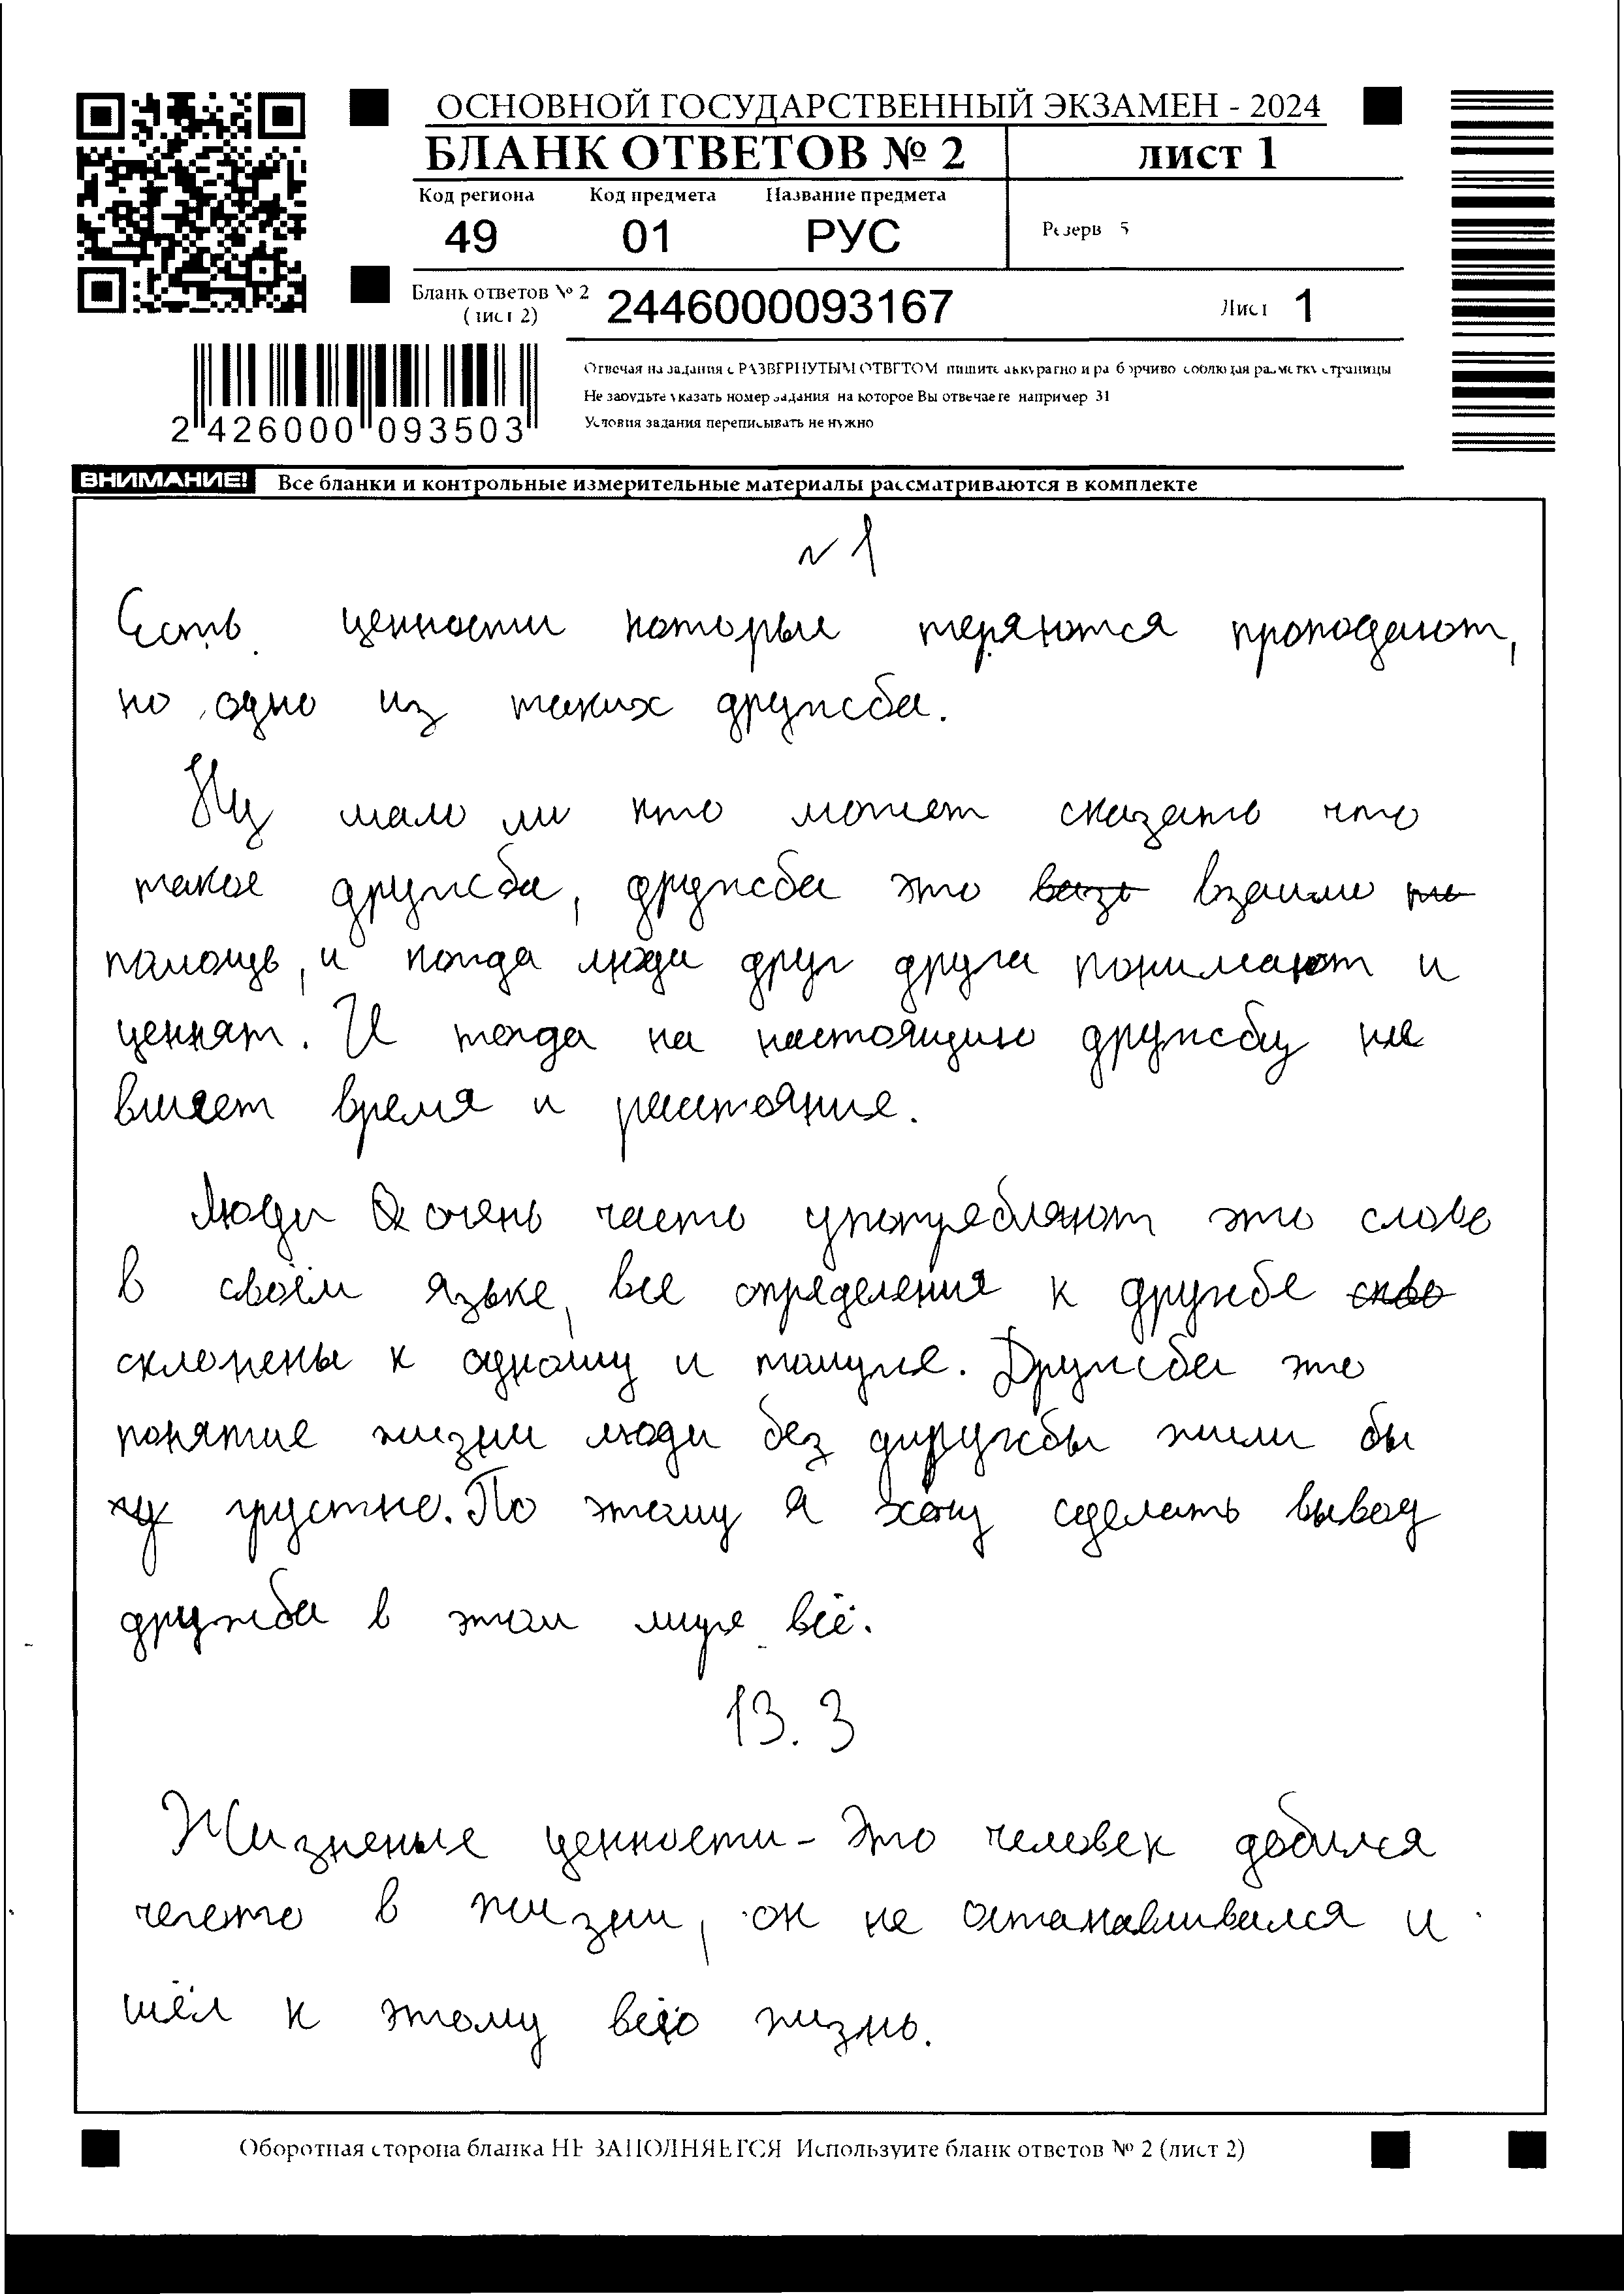 ОСНОВНОЙ ГОСУДАРСТВЕННЫЙ ЭКЗАМЕН - 2024
БЛАНК ОТВЕТОВ № 2
лист 1
Код региона Код предмета Название предмета
49 01 РУС
Резерв 5
Бланк ответов № 2
(лист 2)
2446000093167
Лист 1
2 426000 093503
Отвечая на задания с РАЗВЕРНУТЫМ ОТВЕТОМ пишите аккуратно и разборчиво соблюдая разметку страницы
Не забудьте указать номер задания на которое Вы отвечаете например 31
Условия задания переписывать не нужно
ВНИМАНИЕ! Все бланки и контрольные измерительные материалы рассматриваются в комплекте
N 1
Есть ценности которые теряются пропадают,
но одно из таких дружба.
Ну мало ли кто может сказать что
такое дружба, дружба это взаимо
помощь, и когда люди друг друга понимают и
ценнят. И тогда на настоящию дружбу не
влияет время и расстояние.
Люди очень часто употребляют это слово
в своём языке, все определения к дружбе
склонены к одному и томуже. Дружба это
понятие жизни люди без дружбы жили бы
грустно. По этому я хочу сделать вывод
дружба в этом мире всё.
13.3
Жизненые ценности - это человек добился
чегото в жизни, он не останавливался и
шёл к этому всю жизнь.
Оборотная сторона бланка НЕ ЗАПОЛНЯЕТСЯ Используйте бланк ответов № 2 (лист 2)